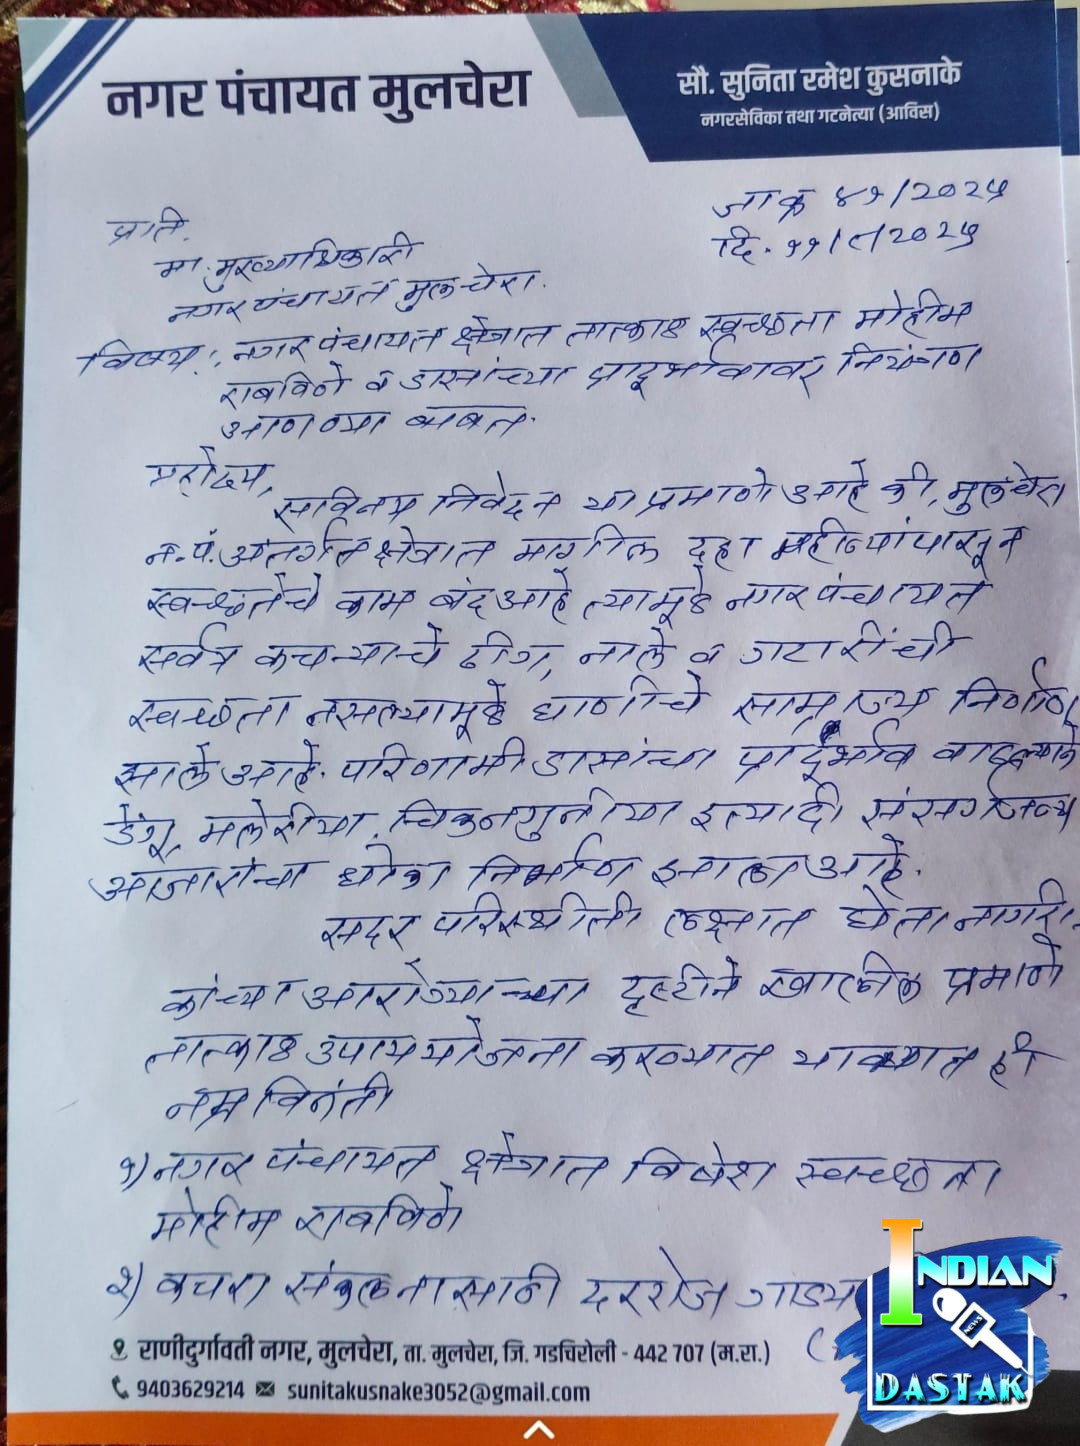 नगर पंचायत मुलचेरा
सौ. सुनिता रमेश कुसनाके
नगरसेविका तथा गटनेत्या (आविस)
जा क्र ४१/२०२५
दि. ११/८/२०२५
प्रति,
मा. मुख्याधिकारी
नगर पंचायत मुलचेरा.
विषय: नगर पंचायत क्षेत्रात तात्काळ स्वच्छता मोहीम
राबविणे व डासांच्या प्रादूर्भावावर नियंत्रण
आणण्या बाबत.
महोदय,
सविनय निवेदन या प्रमाणे आहे की, मुलचेरा
न.पं. अंतर्गत क्षेत्रात मागील दहा महीन्यांपासून
स्वच्छतेचे काम बंद आहे त्यामूळे नगर पंचायत
सर्वत्र कचऱ्याचे ढीग, नाले व गटारींची
स्वच्छता नसल्यामूळे घाणीचे साम्राज्य निर्माण
झाले आहे. परिणामी डासांचा प्रादूर्भाव वाढल्याने
डेंगू, मलेरीया, चिकनगुनीया इत्यादी संसर्गजन्य
आजारांचा धोका निर्माण झाला आहे.
सदर परिस्थीती लक्षात घेता नागरी-
कांच्या आरोग्याच्या दृष्टीने खालील प्रमाणे
तात्काळ उपाययोजना करण्यात याव्यात ही
नम्र विनंती
१) नगर पंचायत क्षेत्रात विषेश स्वच्छता
मोहीम राबविणे
२) कचरा संकलनासाठी दररोज
राणीदुर्गावती नगर, मुलचेरा, ता. मुलचेरा, जि. गडचिरोली - 442 707 (म.रा.)
9403629214 sunitakusnake3052@gmail.com
INDIAN
NEWS
DASTAK